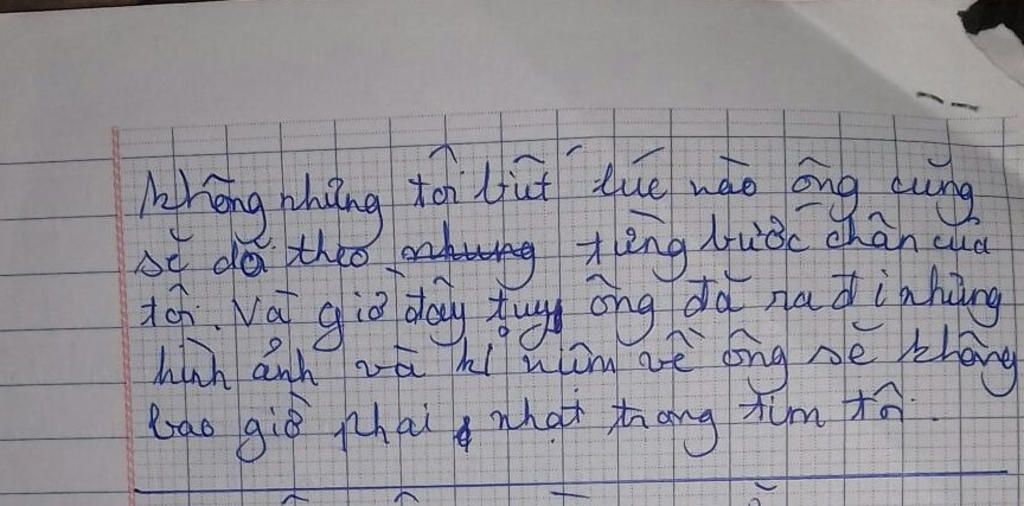 không những tôi biết lúc nào ông cũng
sẽ dõi theo nhưng từng bước chân của
tôi. Và giờ đây tuy ông đã ra đi nhưng
hình ảnh và kỉ niệm về ông sẽ không
bao giờ phai nhạt trong tim tôi.